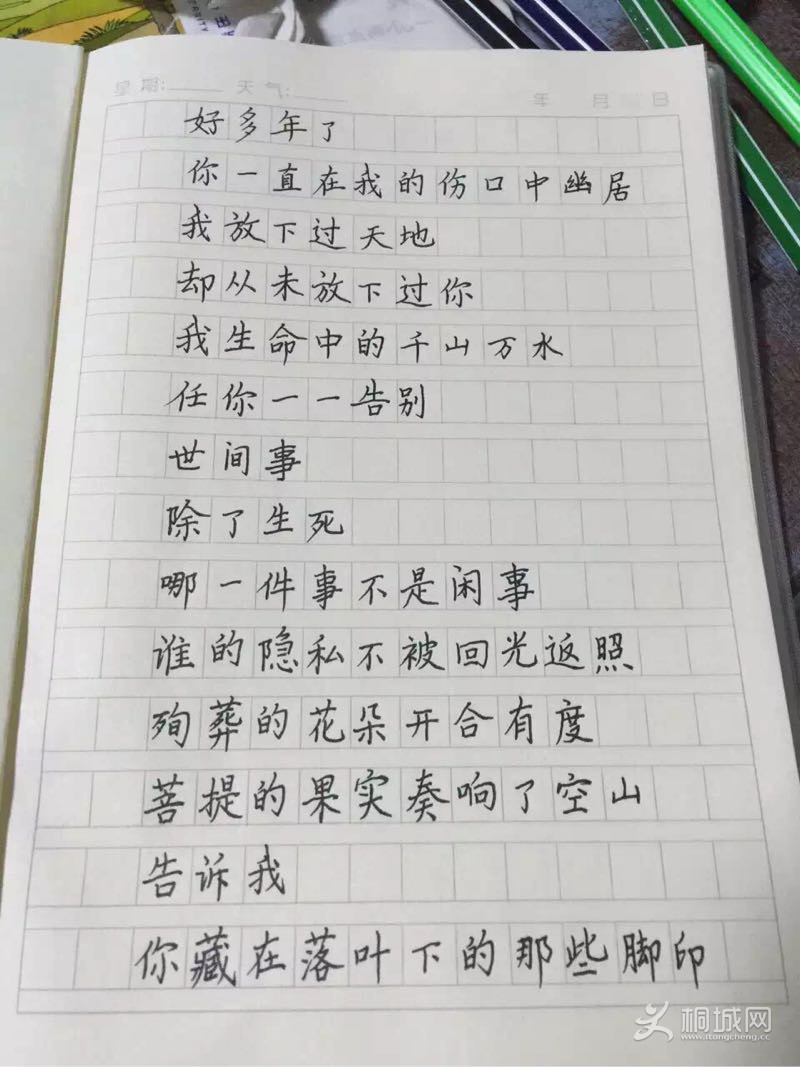 星期: 天气: 年 月 日
好多年了
你一直在我的伤口中幽居
我放下过天地
却从未放下过你
我生命中的千山万水
任你一一告别
世间事
除了生死
哪一件事不是闲事
谁的隐私不被回光返照
殉葬的花朵开合有度
菩提的果实奏响了空山
告诉我
你藏在落叶下的那些脚印
桐城网
www.itongcheng.cc